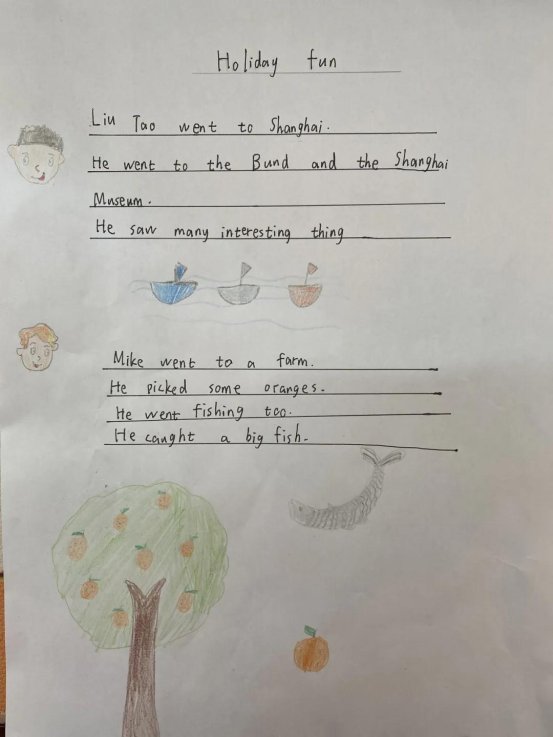 Holiday fun
Liu Tao went to Shanghai.
He went to the Bund and the Shanghai
Museum.
He saw many interesting thing
Mike went to a farm.
He picked some oranges.
He went fishing too.
He caught a big fish.